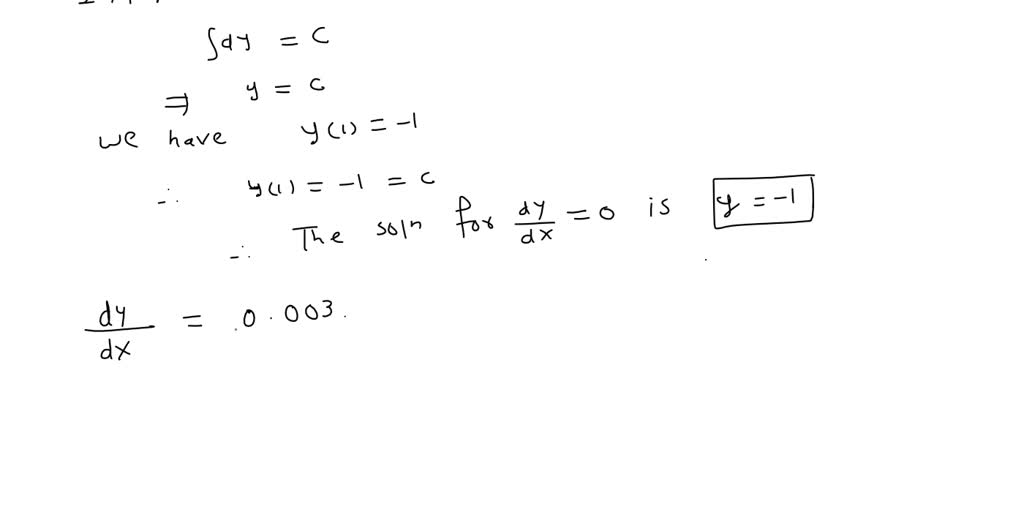 ∫dy = C
⇒ y = c
we have y(1) = -1
∴ y(1) = -1 = c
∴ The soln for dy/dx = 0 is y = -1
dy/dx = 0.003.